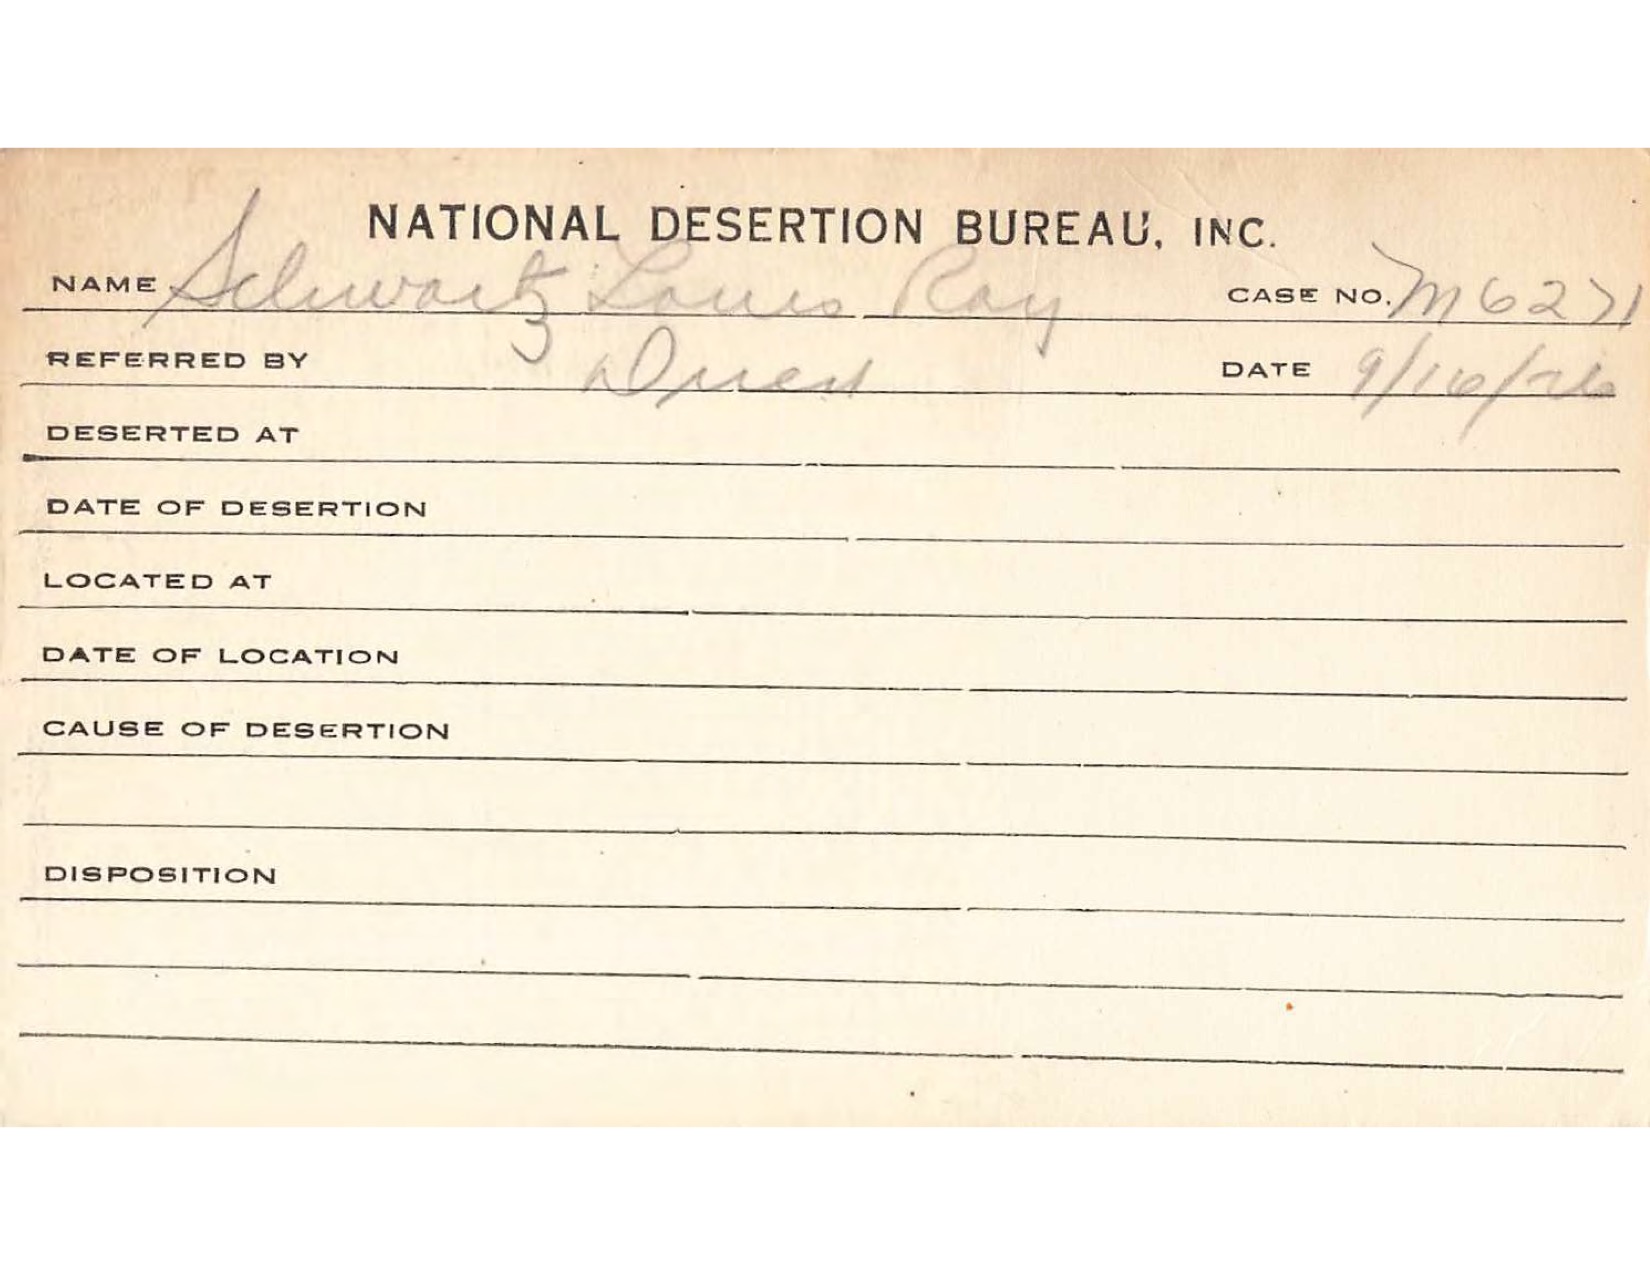 NATIONAL DESERTION BUREAU, INC.
NAME Schwartz Louis Ray CASE NO. M6271
REFERRED BY Direct DATE 9/16/26
DESERTED AT
DATE OF DESERTION
LOCATED AT
DATE OF LOCATION
CAUSE OF DESERTION
DISPOSITION